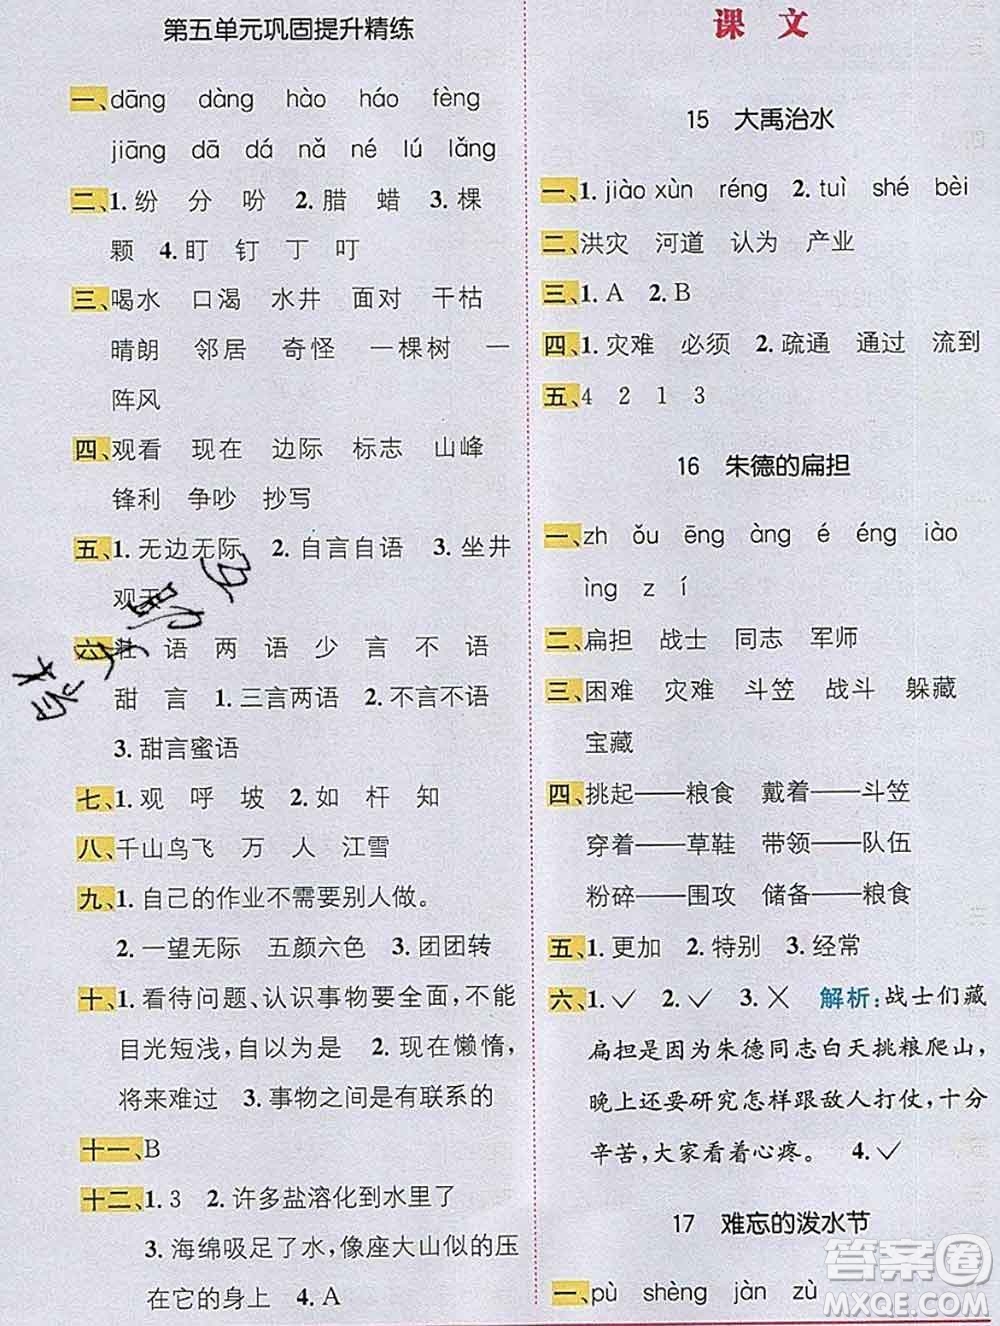 第五单元巩固提升精练
一、dāng dàng hào háo fèng
jiāng dā dá nǎ né lú lǎng
二、1. 纷 分 吩 2. 腊 蜡 3. 棵
颗 4. 盯 钉 丁 叮
三、喝水 口渴 水井 面对 干枯
晴朗 邻居 奇怪 一棵树 一
阵风
四、观看 现在 边际 标志 山峰
锋利 争吵 抄写
五、1. 无边无际 2. 自言自语 3. 坐井
观天
六、壮 语 两 语 少 言 不 语
甜 言 1. 三言两语 2. 不言不语
3. 甜言蜜语
七、1. 观 呼 坡 2. 如 杆 知
八、千山鸟飞 万 人 江雪
九、1. 自己的作业不需要别人做。
2. 一望无际 五颜六色 3. 团团转
十、1. 看待问题、认识事物要全面,不能
目光短浅,自以为是 2. 现在懒惰,
将来难过 3. 事物之间是有联系的
十一、B
十二、1. 3 2. 许多盐溶化到水里了
3. 海绵吸足了水,像座大山似的压
在它的身上 4. A
课文
15 大禹治水
一、1. jiào xùn réng 2. tuì shé bèi
二、洪灾 河道 认为 产业
三、1. A 2. B
四、1. 灾难 必须 2. 疏通 通过 流到
五、4 2 1 3
16 朱德的扁担
一、zh ǒu ēng àng é éng iào
ìng z í
二、扁担 战士 同志 军师
三、困难 灾难 斗笠 战斗 躲藏
宝藏
四、挑起——粮食 戴着——斗笠
穿着——草鞋 带领——队伍
粉碎——围攻 储备——粮食
五、1. 更加 2. 特别 3. 经常
六、1. ✓ 2. ✓ 3. ✗ 解析:战士们藏
扁担是因为朱德同志白天挑粮爬山,
晚上还要研究怎样跟敌人打仗,十分
辛苦,大家看着心疼。 4. ✓
17 难忘的泼水节
一、pù shèng jàn zù
答案圈
MXQE.COM